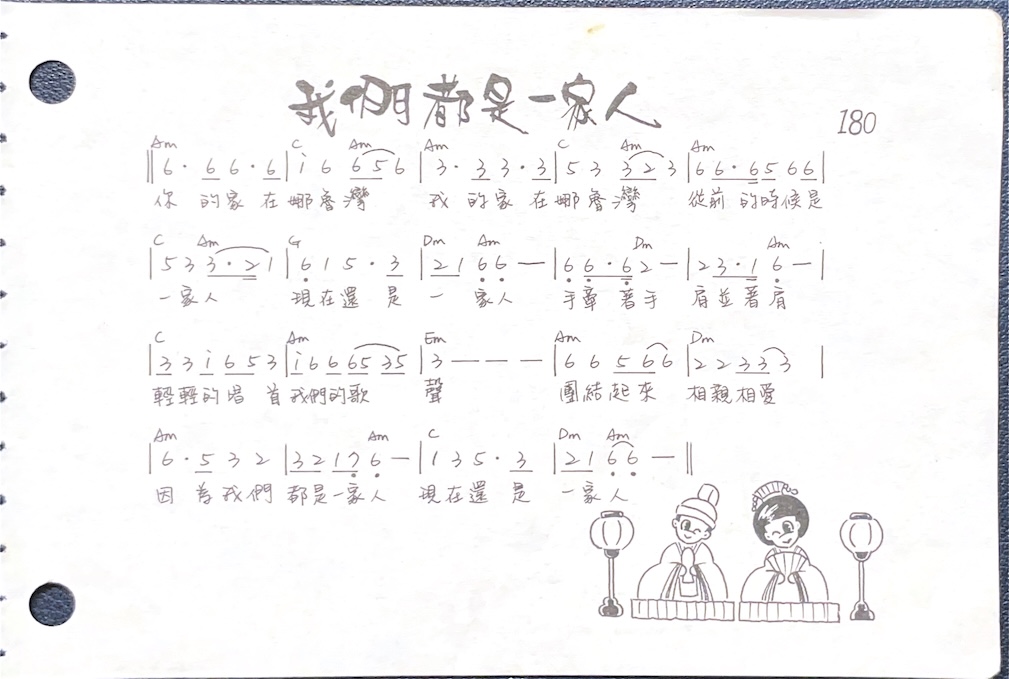 我們都是一家人
180
Am C Am Am C Am Am
‖6· 6 6· 6|i 6 6 5 6|3· 3 3· 3|5 3 3 2 3|6 6· 6 5 6 6|
你 的家 在 哪魯灣 我 的家 在 哪魯灣 從前 的時候是
C Am G Dm Am Dm Am
|5 3 3· 2 1|6 1 5· 3|2 1 6 6 —|6 6· 6 2 —|2 3· 1 6 —|
一家人 現在還 是 一 家人 手牽 著手 肩並著肩
C Am Em Am Dm
|3 3 i 6 5 3|i 6 6 6 5 3 5|3 — — —|6 6 5 6 6|2 2 3 3 3 |
輕輕的唱 首我們的歌 聲 團結起來 相親相愛
Am Am C Dm Am
|6· 5 3 2|3 2 1 7 6 —|1 3 5· 3|2 1 6 6 —‖
因 為我們 都是一家人 現在還 是 一家人